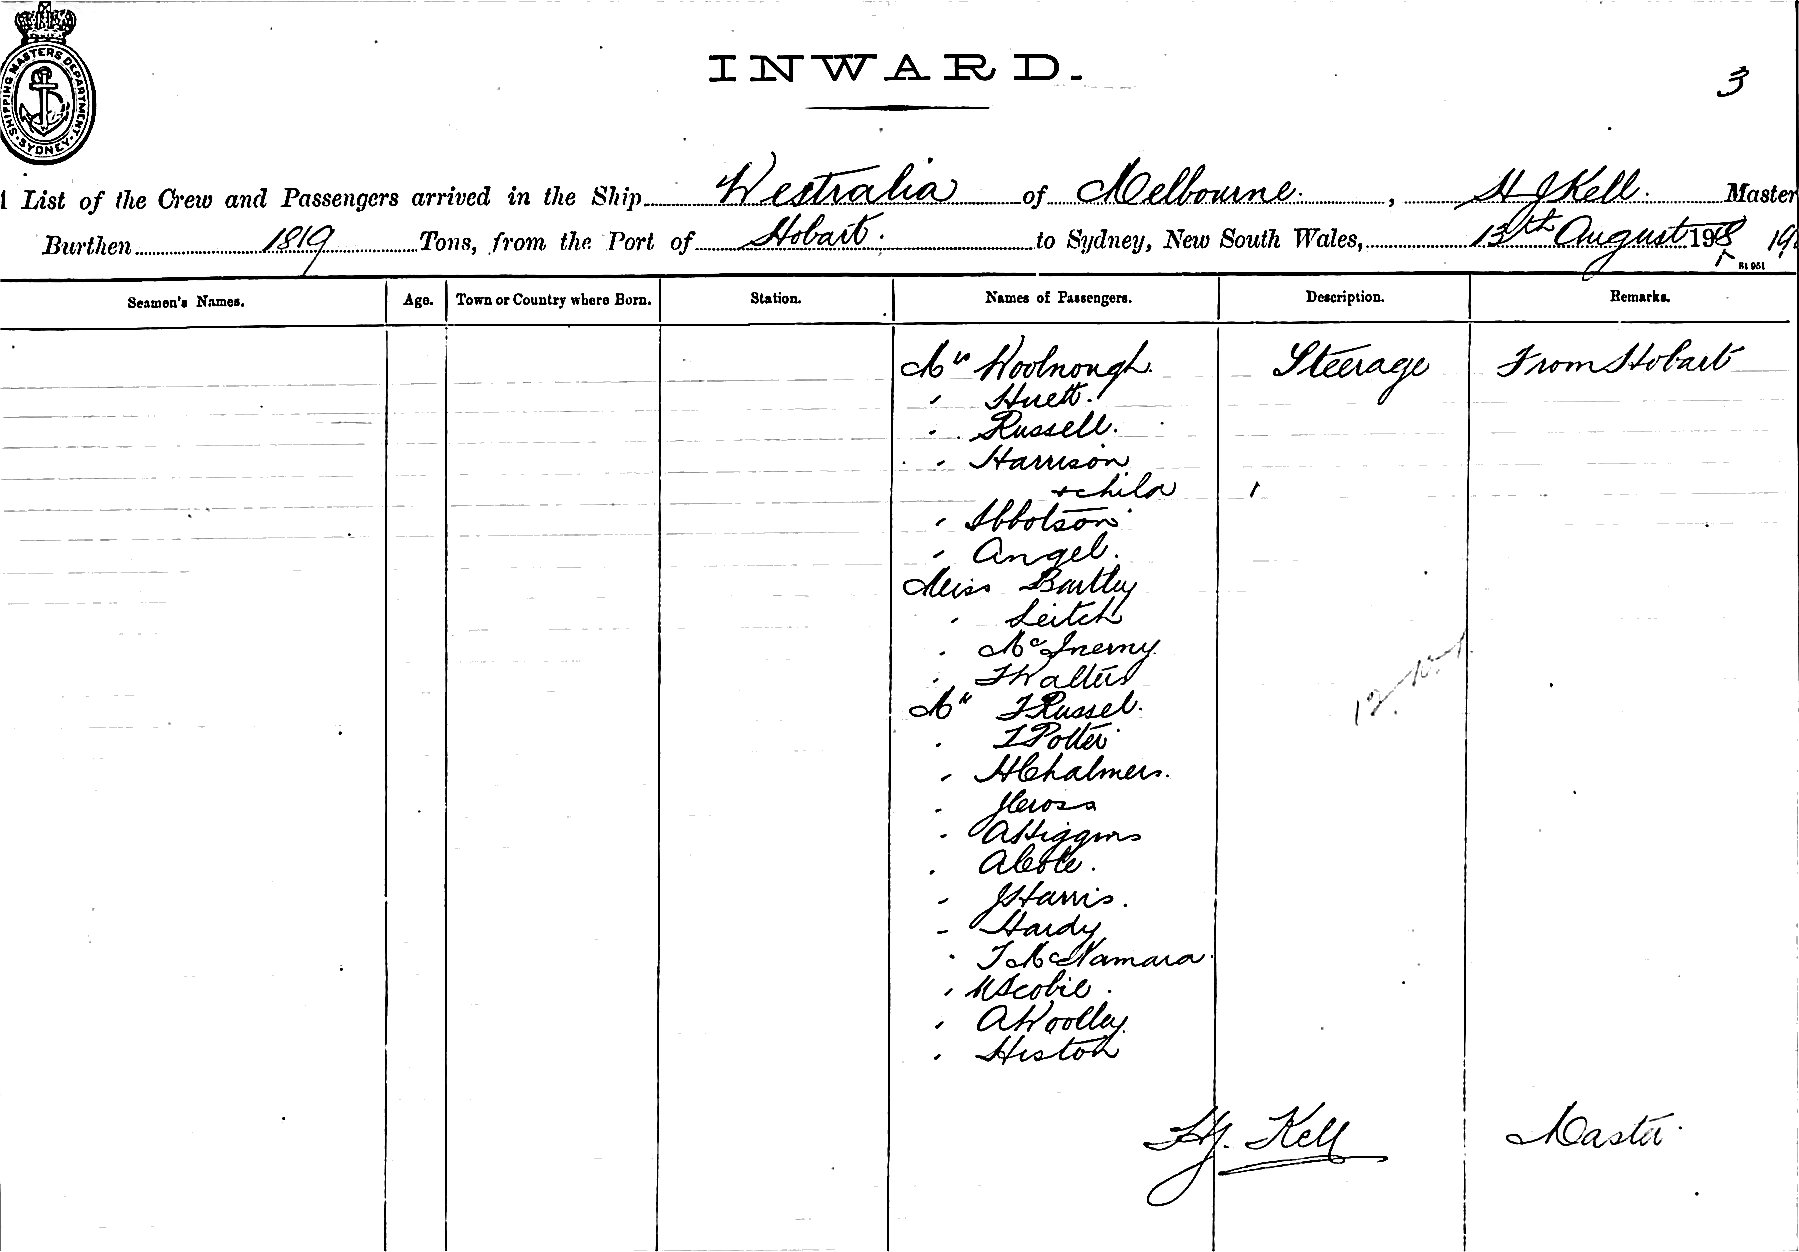 SHIPPING MASTERS DEPARTMENT
SYDNEY
INWARD.
3
List of the Crew and Passengers arrived in the Ship Westralia of Melbourne, H J Kell. Master
Burthen 1819 Tons, from the Port of Hobart. to Sydney, New South Wales, 13th August 19
Seamen's Names. Age. Town or Country where Born. Station. Names of Passengers. Description. Remarks.
Mrs Woolnough. Steerage From Hobart
" Huett.
" Russell.
" Harrison
+ child
" Ibbotson
" Angel.
Miss Bartley
" Leitch
" McInerny
" F Walters
Mr F Russel.
" Potter
" H Chalmers.
" J Cross
" A Higgins
" A Cole.
" J Harris.
" Hardy
" T McNamara
" Scobie.
" A Woolley.
" Histon
H.J. Kell Master